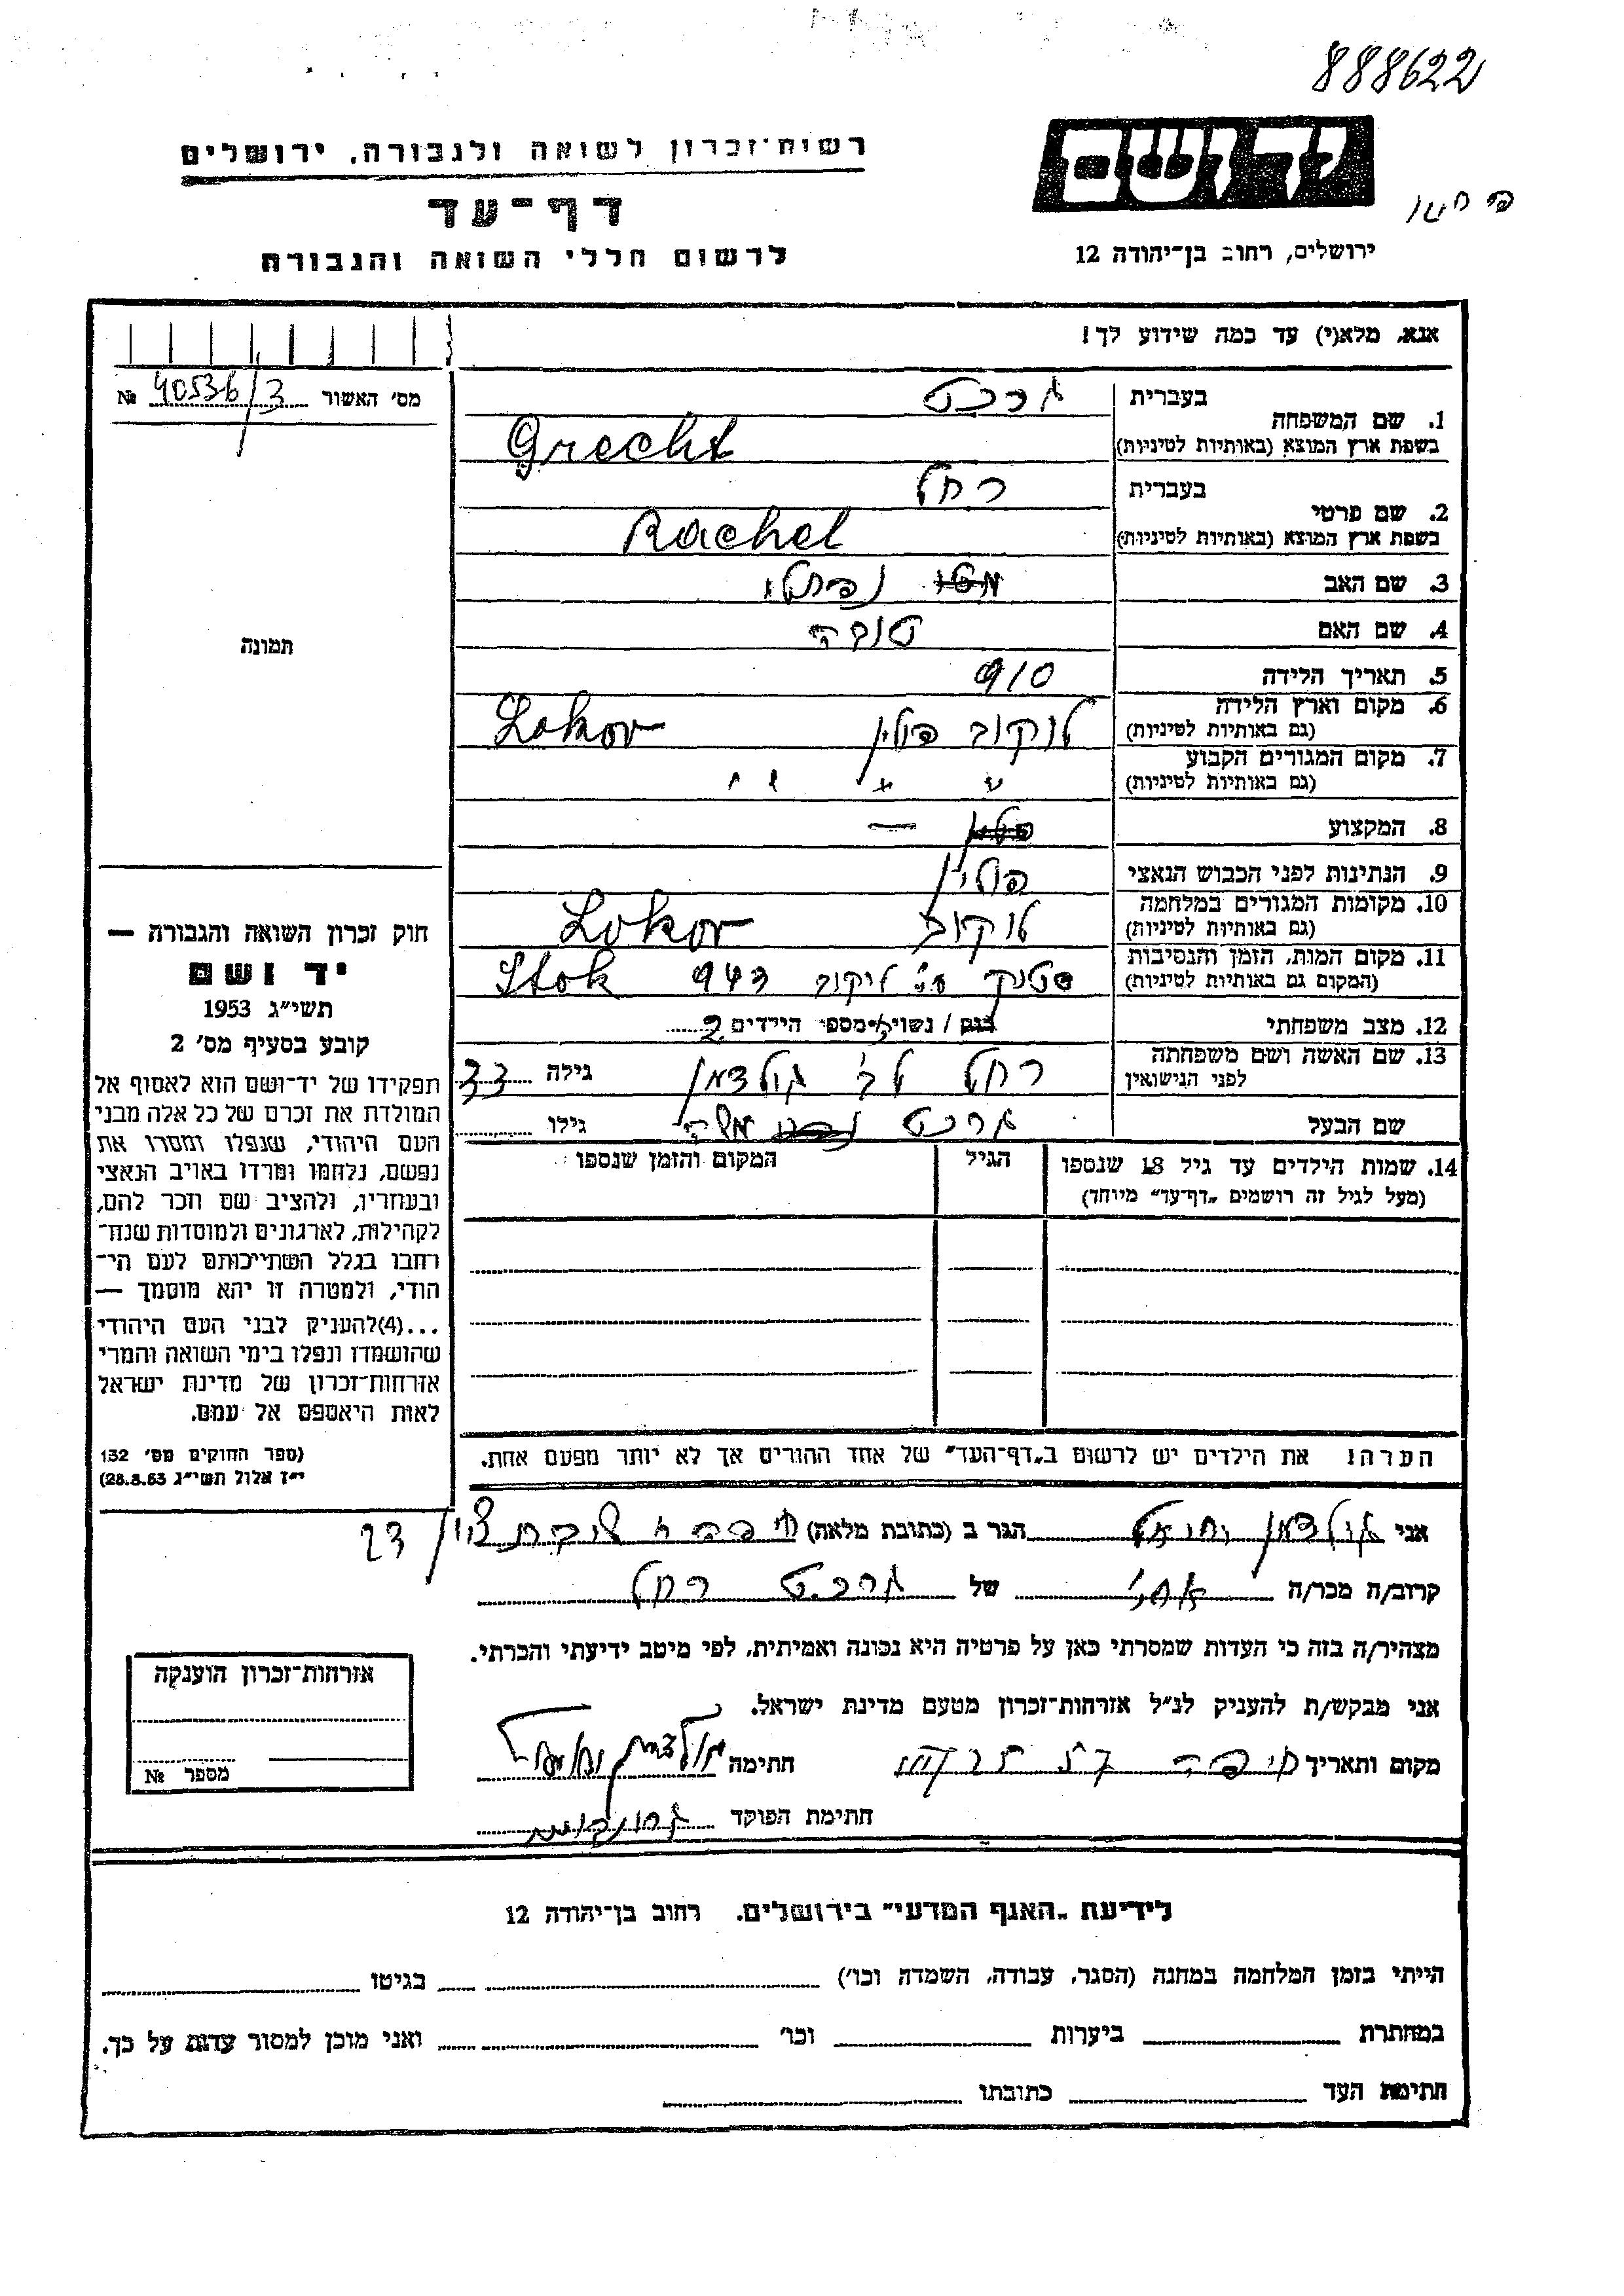 888622
רשות־זכרון לשואה ולגבורה, ירושלים
יד ושם
דף־עד
ירושלים, רחוב בן־יהודה 12
לרשום חללי השואה והגבורה
אנא, מלא(י) עד כמה שידוע לך!
מס׳ האשור 40536/3 №
תמונה
בעברית גרכט
1. שם המשפחה
בשפת ארץ המוצא (באותיות לטיניות) Grecht
בעברית רחל
2. שם פרטי
בשפת ארץ המוצא (באותיות לטיניות) Rachel
3. שם האב נפתלי
4. שם האם טובה
5. תאריך הלידה 910
6. מקום וארץ הלידה
(גם באותיות לטיניות) לוקוב פולין Lokov
7. מקום המגורים הקבוע
(גם באותיות לטיניות) " " " "
8. המקצוע —
9. הנתינות לפני הכבוש הנאצי פולין
10. מקומות המגורים במלחמה
(גם באותיות לטיניות) לוקוב Lokov
11. מקום המות, הזמן והנסיבות
(המקום גם באותיות לטיניות) סטוק ע״י לוקוב 943 Stok
12. מצב משפחתי רווק / נשוי מספר הילדים 2
13. שם האשה ושם משפחתה
לפני הנישואין רחל לב׳ גולדמן גילה 33
שם הבעל גרכט משה גילו
14. שמות הילדים עד גיל 18 שנספו
(מעל לגיל זה רושמים „דף־עד״ מיוחד)
הגיל
המקום והזמן שנספו
חוק זכרון השואה והגבורה —
יד ושם
תשי״ג 1953
קובע בסעיף מס׳ 2
תפקידו של יד־ושם הוא לאסוף אל
המולדת את זכרם של כל אלה מבני
העם היהודי, שנפלו ומסרו את
נפשם, נלחמו ומרדו באויב הנאצי
ובעוזריו, ולהציב שם וזכר להם,
לקהילות, לארגונים ולמוסדות שנח־
רחבו בגלל השתייכותם לעם הי־
הודי, ולמטרה זו יהא מוסמך —
...(4)להעניק לבני העם היהודי
שהושמדו ונפלו בימי השואה והמרי
אזרחות־זכרון של מדינת ישראל
לאות היאספם אל עמם.
(ספר החוקים מס׳ 132
י״ז אלול תשי״ג 28.8.53)
הערה! את הילדים יש לרשום ב„דף־העד״ של אחד ההורים אך לא יותר מפעם אחת.
אני גולדמן הגר ב (כתובת מלאה) שיבת ציון 23
קרוב/ה מכר/ה אחי של גרכט רחל
מצהיר/ה בזה כי העדות שמסרתי כאן על פרטיה היא נכונה ואמיתית, לפי מיטב ידיעתי והכרתי.
אני מבקש/ת להעניק לנ״ל אזרחות־זכרון מטעם מדינת ישראל.
מקום ותאריך חיפה חתימה
חתימת הפוקד
אזרחות־זכרון הוענקה
מספר №
לידיעת „האגף המדעי״ בירושלים. רחוב בן־יהודה 12
הייתי בזמן המלחמה במחנה (הסגר, עבודה, השמדה וכו׳) בגיטו
במחתרת ביערות וכו׳ ואני מוכן למסור עדות על כך.
חתימת העד כתובתו